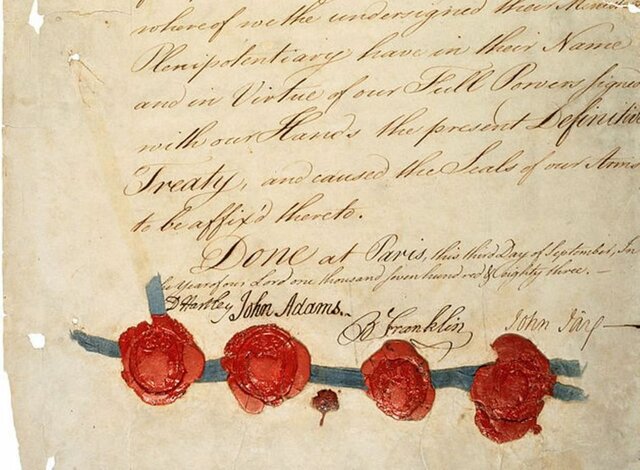 whereof we the undersigned their Minis
Plenipotentiary have in their Name
and in Virtue of our Full Powers signed
with our Hands the present Definitive
Treaty, and caused the Seals of our Arms
to be affix'd thereto.
Done at Paris, this third Day of September, In
Year of our Lord one thousand seven hundred & eighty three. —
D Hartley John Adams. B Franklin John Jay —